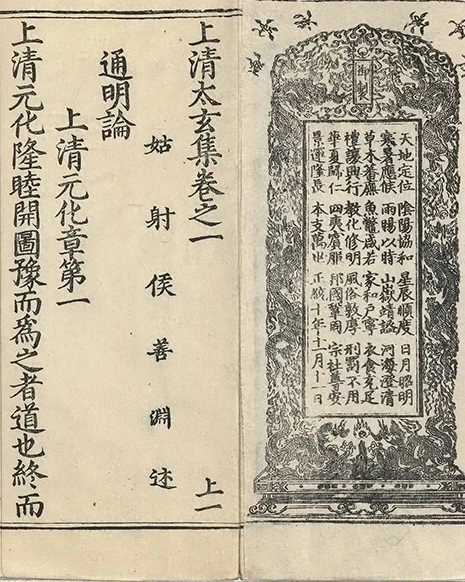 御製
天地定位 陰陽協和 星辰順度 日月昭明
寒暑應候 雨暘以時 山嶽靖謐 河瀆澄清
草木蕃廡 魚鱉咸若 家和戶寧 衣食充足
禮讓興行 教化修明 風俗敦厚 刑罰不用
華夏歸仁 四夷賓服 邦國鞏固 宗社尊安
景運隆長 本支萬世 正統十年十一月十一日
上清太玄集卷之一 上一
姑射侯善淵述
通明論
上清元化章第一
上清元化隆睦開圖豫而為之者道也終而